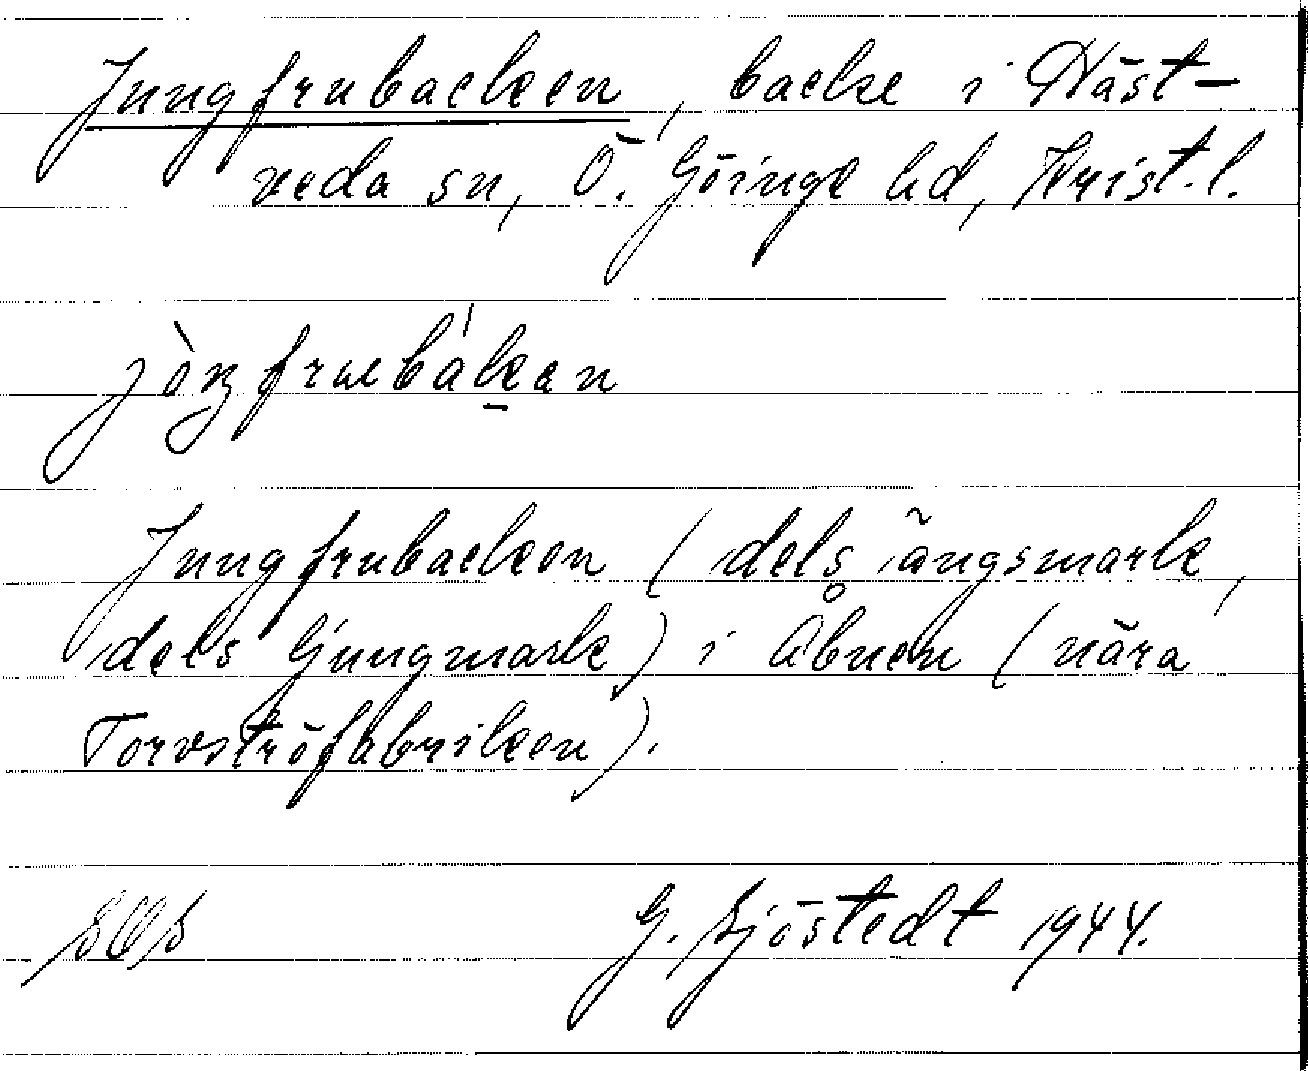 Jungfrubacken, backe i Häst-
veda sn, Ö. Göinge hd, Krist.l.
Jungfrubacken (dels ängsmark,
dels ljungmark) i Åbuen (nära
Torvströfabriken).
G. Sjöstedt 1944.